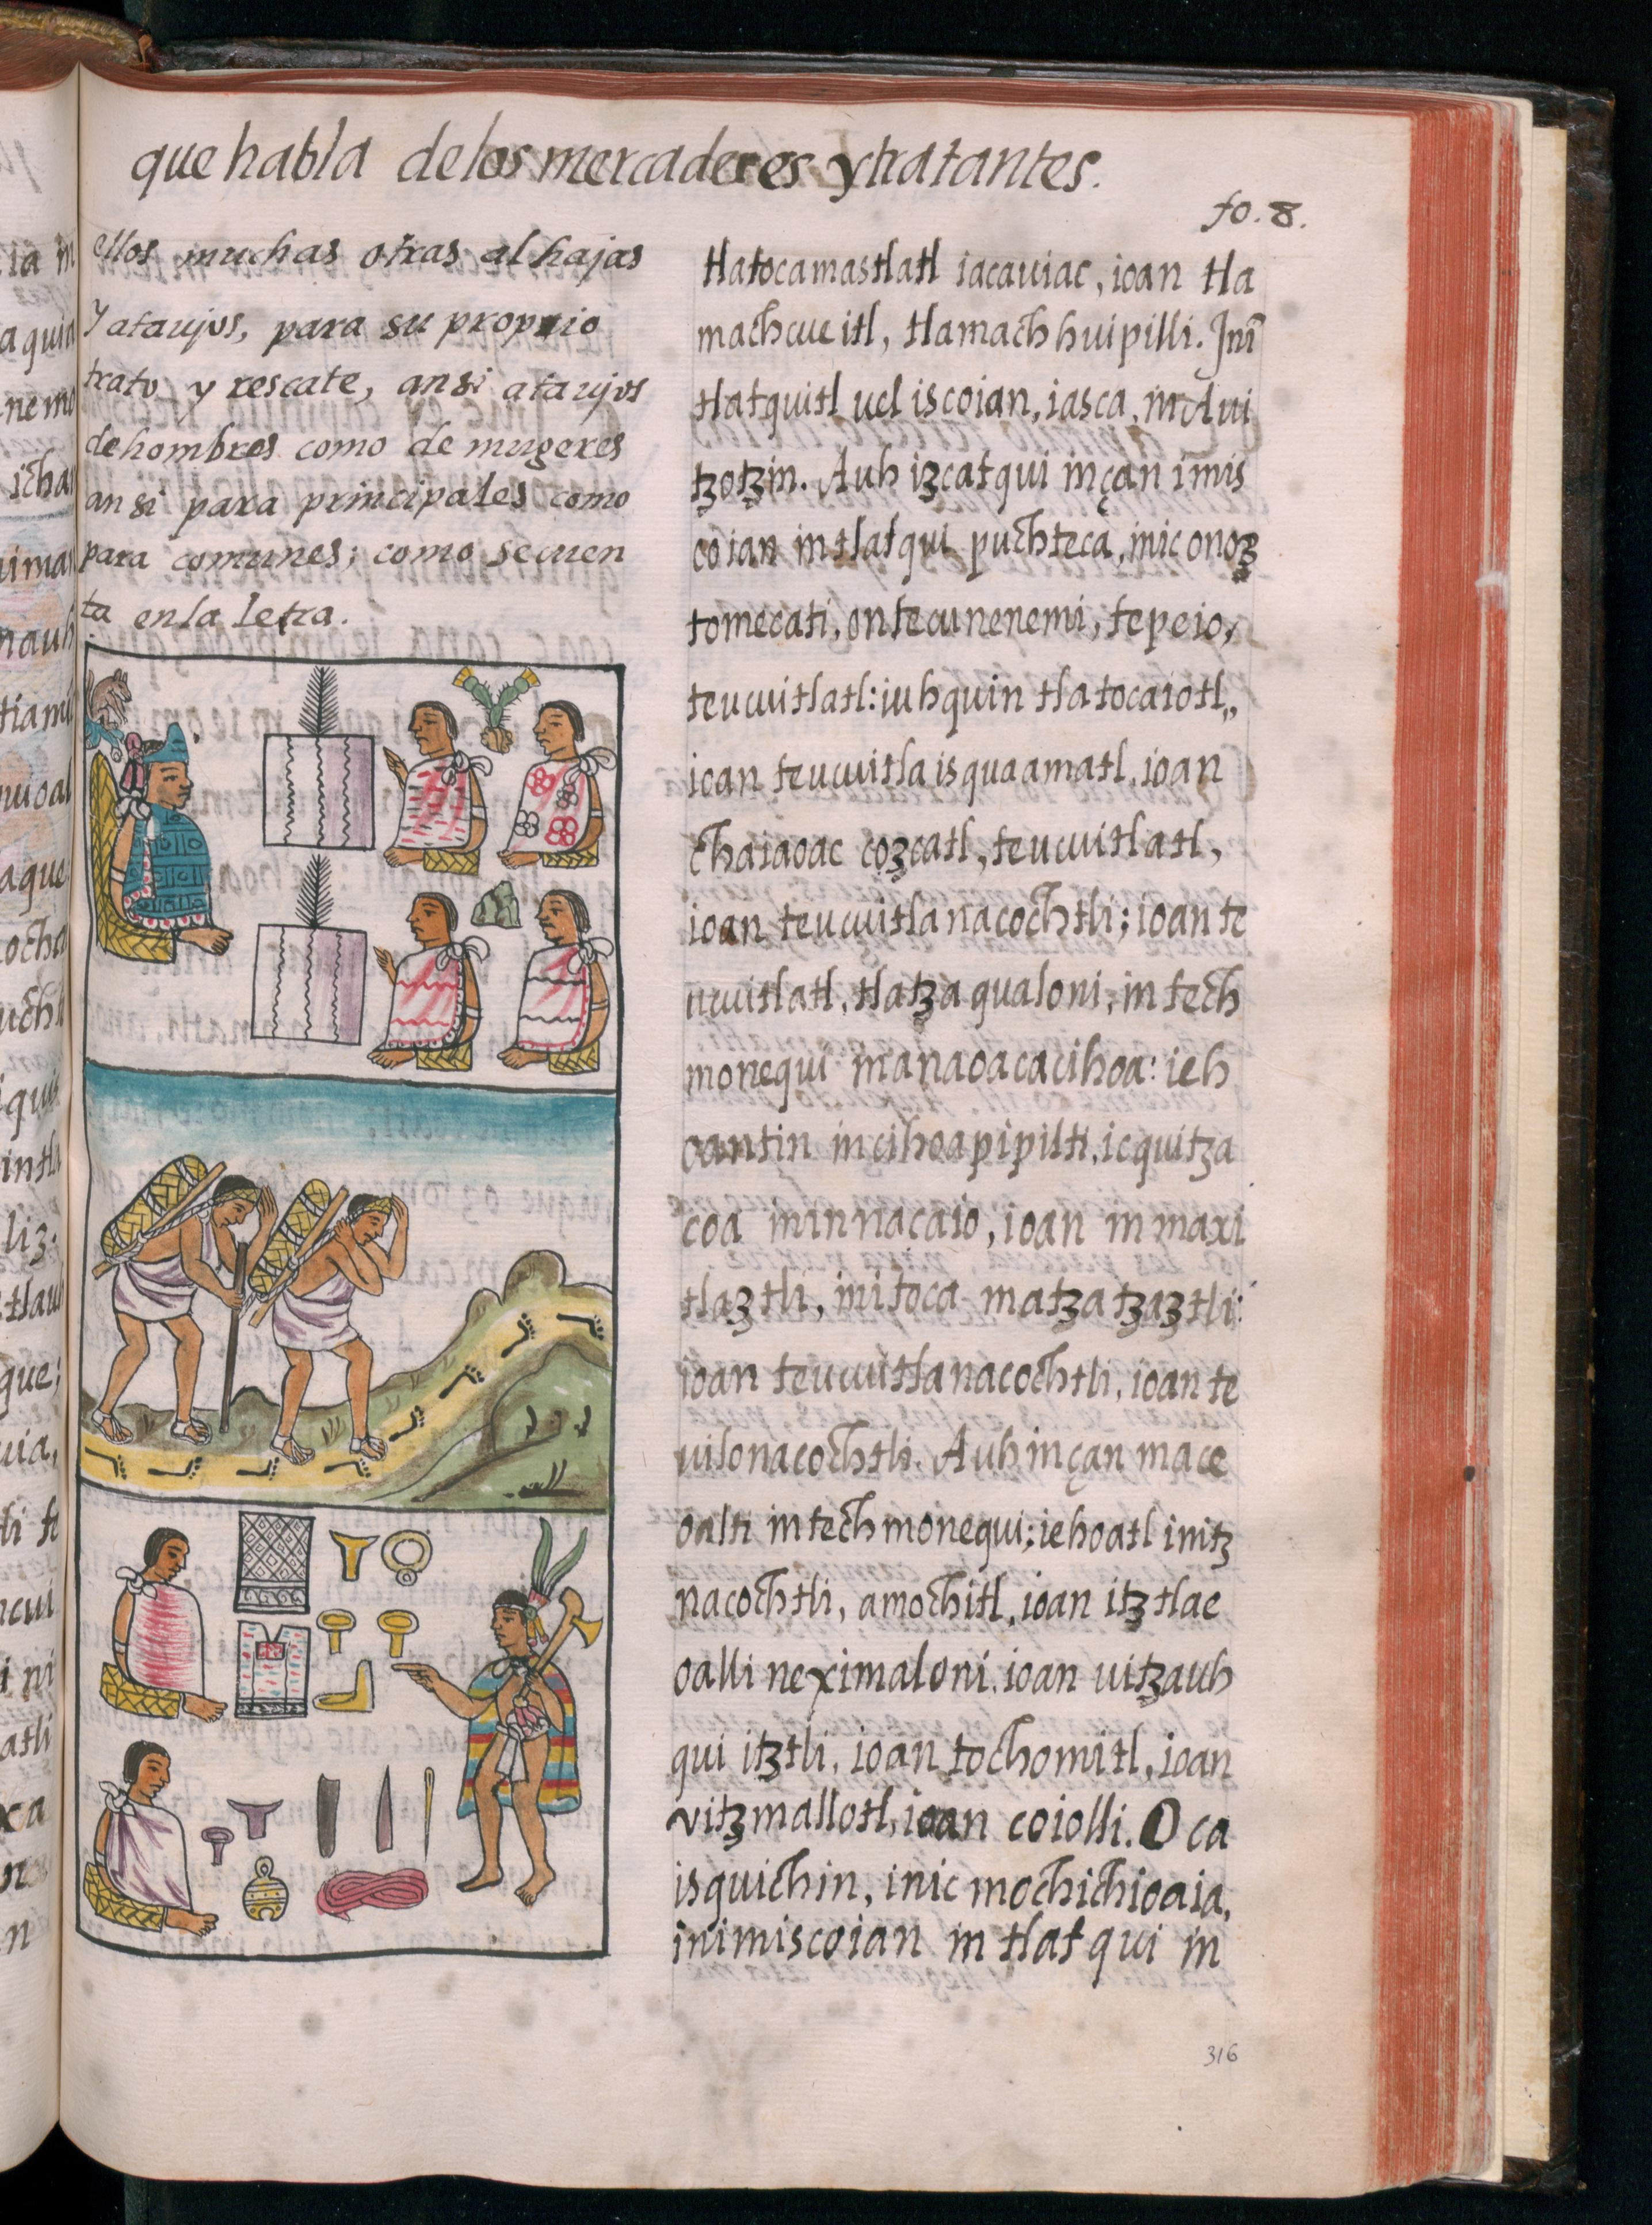 que habla de los mercaderes y tratantes.
fo. 8.
ellos muchas otras alhajas
y ataujos, para su proprio
trato y rescate, ansi ataujos
de hombres como de mugeres
ansi para principales como
para comunes; como se cuen
ta en la letra.
tlatocamastlatl iacauiac, ioan tla
machcueitl, tlamachhuipilli. Jnī
tlatquitl uel iscoian, iasca, in Aui
tzotzin. Auh izcatqui in çan imis
coian intlatqui puchteca, inic onoz
tomecati, ontecunenemi, tepeio,
teucuitlatl: iuhquin tlatocaiotl,
ioan teucuitla isquaamatl, ioan
chaiaoac cozcatl, teucuitlatl,
ioan teucuitlanacochtli; ioan te
ucuitlatl, tlatzaqualoni, intech
monequi in anaoaca cihoa: ieh
oantin in cihoapipilti, ic quitza
coa in innacaio, ioan in maxi
tlaztli, in itoca matzatzaztli:
ioan teucuitlanacochtli, ioan te
uilonacochtli. Auh in çan mace
oalti intech monequi; iehoatl in itz
nacochtli, amochitl, ioan itztlae
oalli neximaloni, ioan uitzauh
qui itztli, ioan tochomitl, ioan
vitzmallotl, ioan coiolli. O ca
isquichin, inic mochichioaia,
inimiscoian in tlatqui in
316